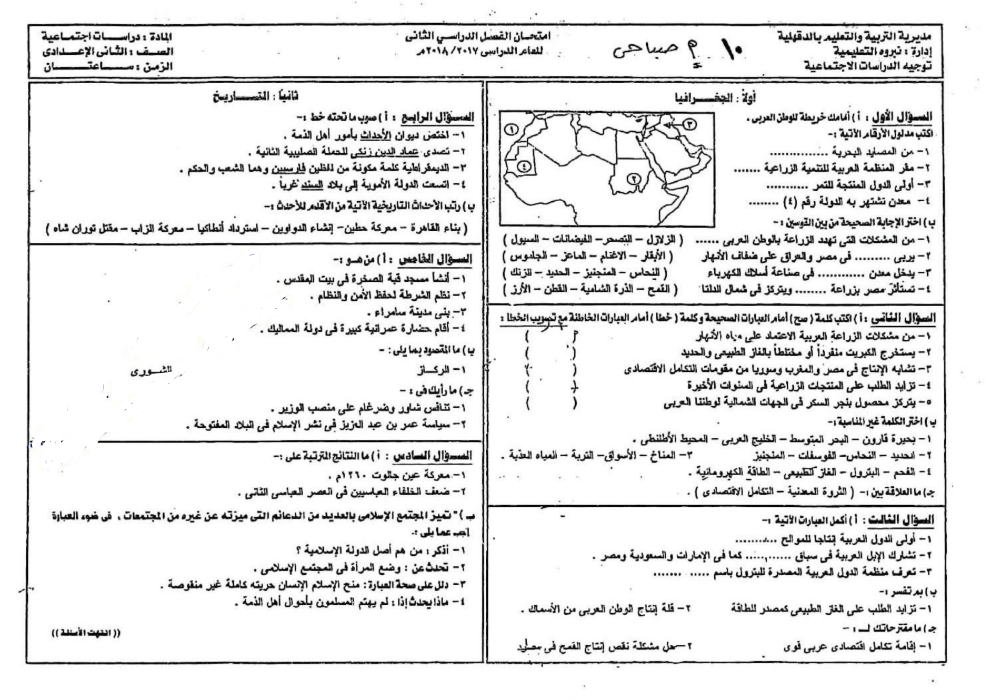 مديرية التربية والتعليم بالدقهلية
إدارة : نبروه التعليمية
توجيه الدراسات الاجتماعية
١٠ م صباحى
امتحان الفصل الدراسي الثانى
للعام الدراسى ٢٠١٧/ ٢٠١٨م
المادة : دراسات اجتماعية
الصف : الثانى الإعدادى
الزمن : ساعتان
أولاً : الجغرافيا
السؤال الأول : أ ) أمامك خريطة للوطن العربى .
اكتب مدلول الأرقام الآتية :-
١- من المصايد البحرية ...............
٢- مقر المنظمة العربية للتنمية الزراعية .......
٣- أولى الدول المنتجة للتمر ...........
٤- معدن تشتهر به الدولة رقم (٤) ........
١
٢
٣
٤
ب ) اختر الإجابة الصحيحة من بين القوسين :-
١- من المشكلات التى تهدد الزراعة بالوطن العربى ...... ( الزلازل – التصحر – الفيضانات – السيول )
٢- يربى ......... فى مصر والعراق على ضفاف الأنهار ( الأبقار – الاغنام – الماعز – الجاموس )
٣- يدخل معدن ............ فى صناعة أسلاك الكهرباء ( النحاس – المنجنيز – الحديد – الزنك )
٤- تستأثر مصر بزراعة ........ ويتركز فى شمال الدلتا ( القمح – الذرة الشامية – القطن – الأرز )
السؤال الثانى : أ ) اكتب كلمة ( صح ) أمام العبارات الصحيحة وكلمة ( خطأ ) أمام العبارات الخاطئة مع تصويب الخطأ :
١- من مشكلات الزراعة العربية الاعتماد على مياه الأنهار ( )
٢- يستخرج الكبريت منفرداً أو مختلطاً بالغاز الطبيعى والحديد ( )
٣- تشابه الإنتاج فى مصر والمغرب وسوريا من مقومات التكامل الاقتصادى ( )
٤- تزايد الطلب على المنتجات الزراعية فى السنوات الأخيرة ( )
٥- يتركز محصول بنجر السكر فى الجهات الشمالية لوطننا العربى ( )
ب ) اختر الكلمة غير المناسبة :-
١- بحيرة قارون – البحر المتوسط – الخليج العربى – المحيط الأطلنطى .
٢- الحديد – النحاس– الفوسفات – المنجنيز ٣- المناخ – الأسواق– التربة – المياه العذبة .
٤- الفحم – البترول – الغاز الطبيعى – الطاقة الكهرومائية .
جـ ) ما العلاقة بين :- ( الثروة المعدنية – التكامل الاقتصادى ) .
السؤال الثالث : أ ) أكمل العبارات الآتية :-
١- أولى الدول العربية إنتاجاً للموالح ..........
٢- تشارك الإبل العربية فى سباق ........... كما فى الإمارات والسعودية ومصر .
٣- تعرف منظمة الدول العربية المصدرة للبترول باسم ..... .......
ب ) بم تفسر :-
١- تزايد الطلب على الغاز الطبيعى كمصدر للطاقة ٢- قلة إنتاج الوطن العربى من الأسماك .
جـ ) ما مقترحاتك لـ :-
١- إقامة تكامل اقتصادى عربى قوى ٢- حل مشكلة نقص إنتاج القمح فى مصر
ثانياً : التـاريخ
السؤال الرابع : أ ) صوب ما تحته خط :-
١- اختص ديوان الأحداث بأمور أهل الذمة .
٢- تصدى عماد الدين زنكى للحملة الصليبية الثانية .
٣- الديمقراطية كلمة مكونة من لفظين فارسيين وهما الشعب والحكم .
٤- اتسعت الدولة الأموية إلى بلاد السند غرباً .
ب ) رتب الأحداث التاريخية الآتية من الأقدم للأحدث :-
( بناء القاهرة – معركة حطين– إنشاء الدواوين – استرداد أنطاكيا – معركة الزاب – مقتل توران شاه )
السؤال الخامس : أ ) من هو :-
١- أنشأ مسجد قبة الصخرة فى بيت المقدس .
٢- نظم الشرطة لحفظ الأمن والنظام .
٣- بنى مدينة سامراء .
٤- أقام حضارة عمرانية كبيرة فى دولة المماليك .
ب ) ما المقصود بما يلى : -
١- الركـاز الشورى
جـ ) ما رأيك فى : -
١- تنافس شاور وضرغام على منصب الوزير .
٢- سياسة عمر بن عبد العزيز فى نشر الإسلام فى البلاد المفتوحة .
السؤال السادس : أ ) ما النتائج المترتبة على :-
١- معركة عين جالوت ١٢٦٠م .
٢- ضعف الخلفاء العباسيين فى العصر العباسى الثانى .
ب ) " تميز المجتمع الإسلامى بالعديد من الدعائم التى ميزته عن غيره من المجتمعات ، فى ضوء العبارة
أجب عما يلى :-
١- أذكر : من هم أصل الدولة الإسلامية ؟
٢- تحدث عن : وضع المرأة فى المجتمع الإسلامى .
٣- دلل على صحة العبارة : منح الإسلام الإنسان حريته كاملة غير منقوصة .
٤- ماذا يحدث إذا : لم يهتم المسلمون بأحوال أهل الذمة .
(( انتهت الأسئلة ))